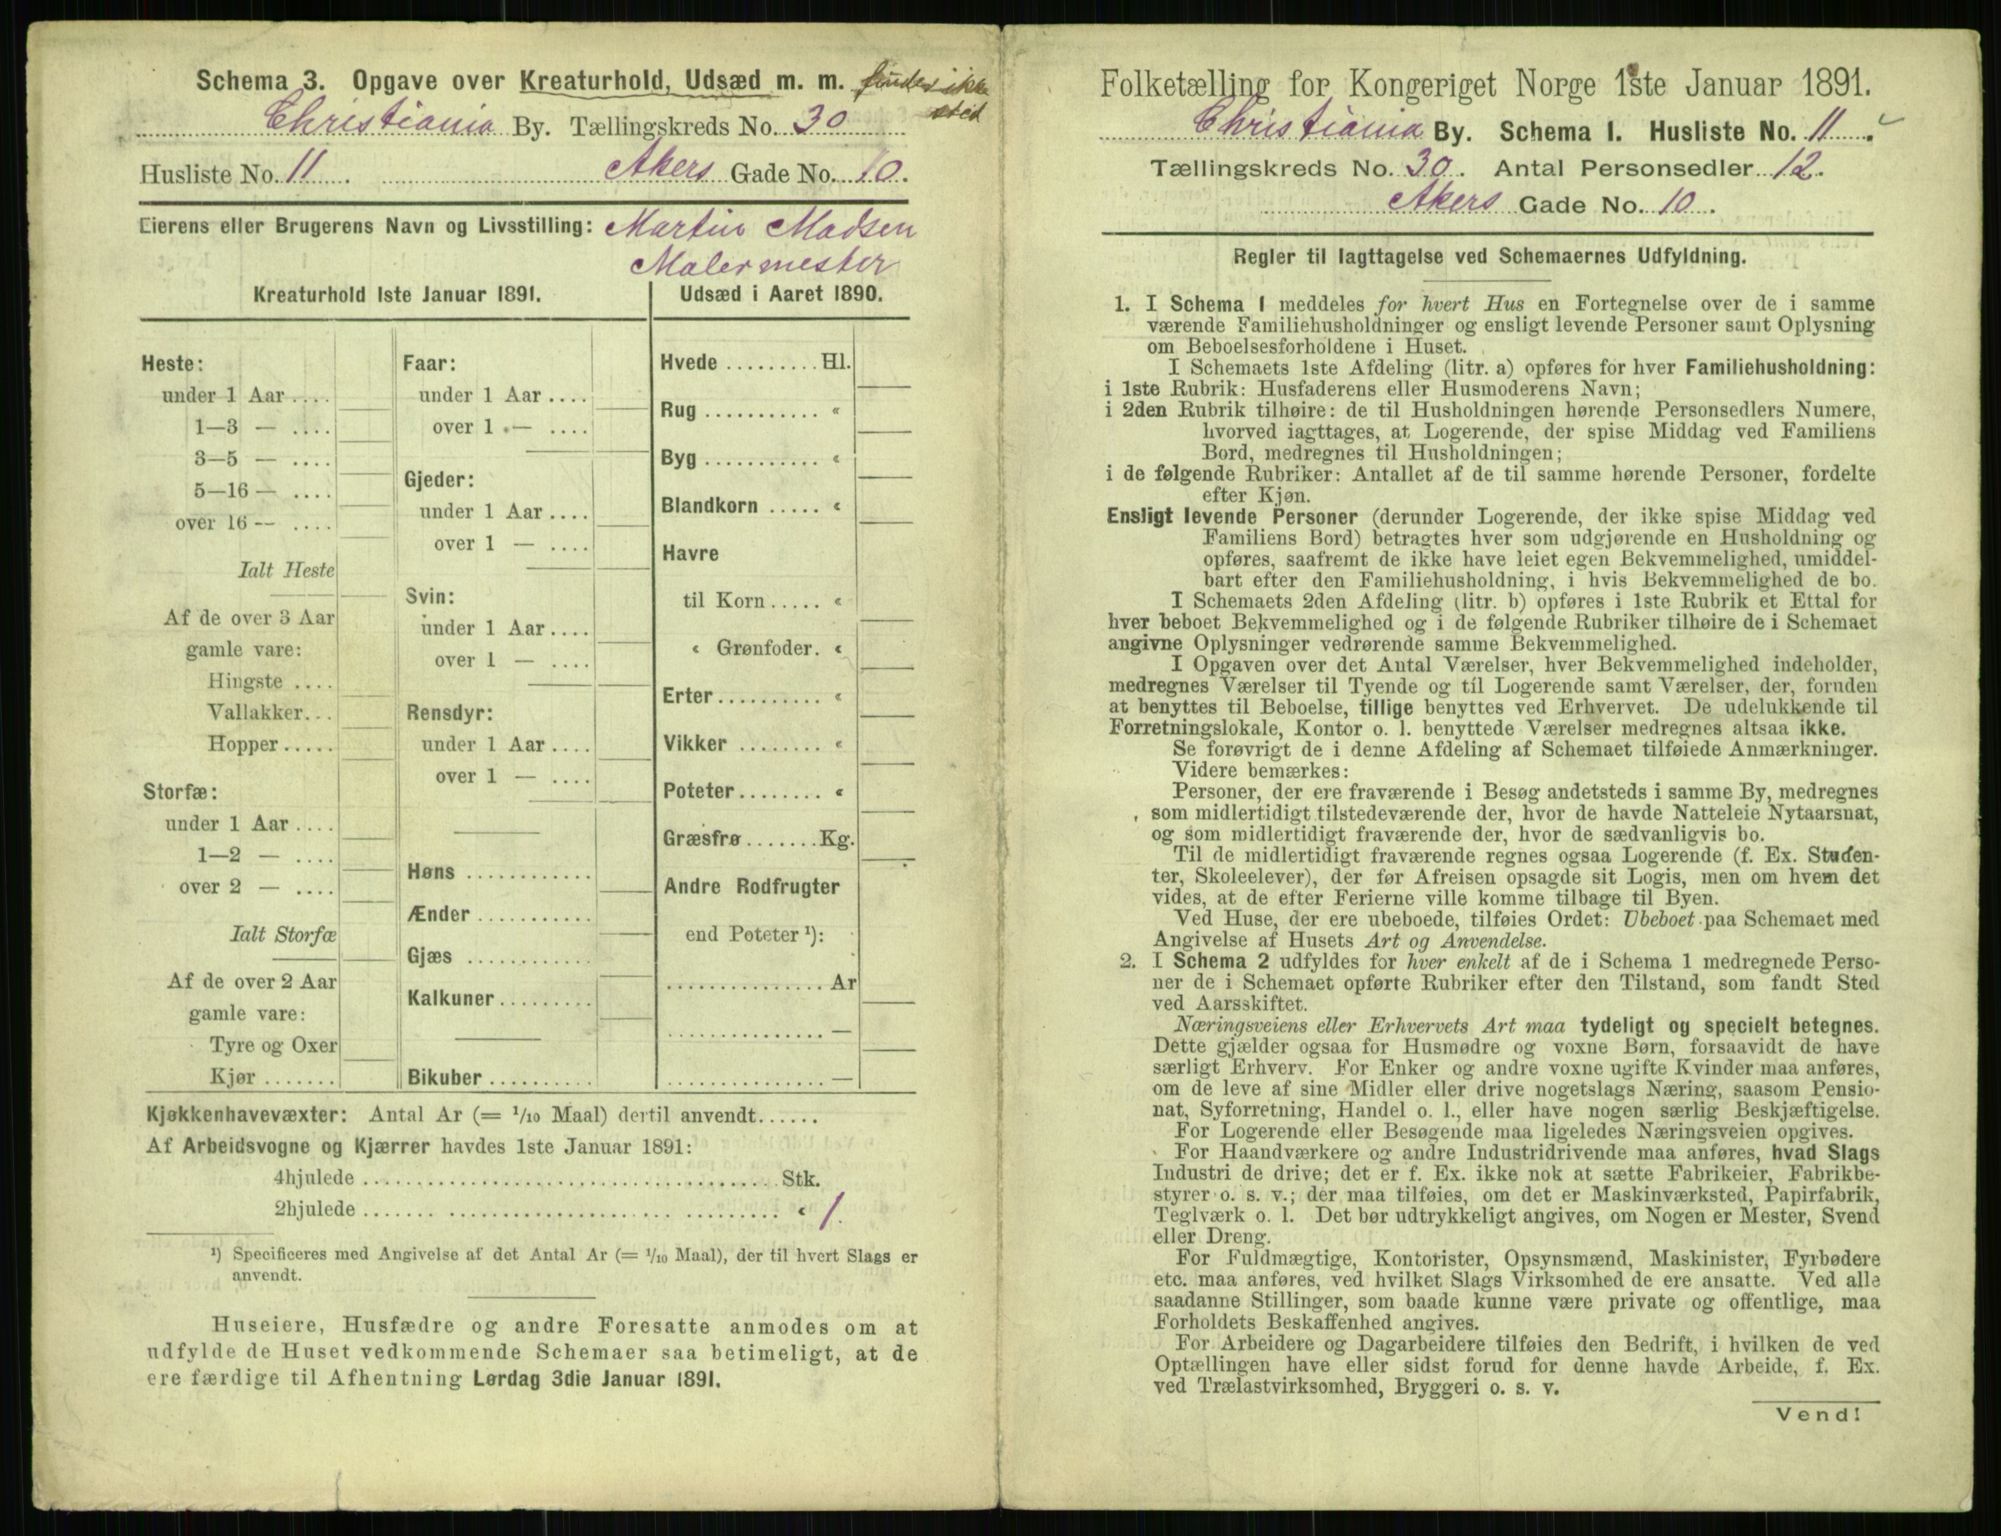 Schema 3. Opgave over Kreaturhold, Udsæd m. m. findes ikke
sted
Christiania By. Tællingskreds No. 30
Husliste No. 11. Akers Gade No. 10.
Eierens eller Brugerens Navn og Livsstilling: Martin Madsen
Malermester
Kreaturhold 1ste Januar 1891.
Heste:
under 1 Aar ....
1—3 — ....
3—5 — ....
5—16 — ....
over 16 — ....
Ialt Heste
Af de over 3 Aar
gamle vare:
Hingste ....
Vallakker...
Hopper .....
Storfæ:
under 1 Aar ....
1—2 — ....
over 2 — ....
Ialt Storfæ
Af de over 2 Aar
gamle vare:
Tyre og Oxer
Kjør .......
Faar:
under 1 Aar ....
over 1 — ....
Gjeder:
under 1 Aar ....
over 1 — ....
Svin:
under 1 Aar ....
over 1 — ....
Rensdyr:
under 1 Aar ....
over 1 — ....
Høns ............
Ænder ...........
Gjæs ............
Kalkuner .........
Bikuber ..........
Udsæd i Aaret 1890.
Hvede ......... Hl.
Rug ........... «
Byg ........... «
Blandkorn ..... «
Havre
til Korn ..... «
« Grønfoder. «
Erter .......... «
Vikker ........ «
Poteter ........ «
Græsfrø ....... Kg.
Andre Rodfrugter
end Poteter ¹):
............... Ar
............... —
............... —
Kjøkkenhavevæxter: Antal Ar (= 1/10 Maal) dertil anvendt......
Af Arbeidsvogne og Kjærrer havdes 1ste Januar 1891:
4hjulede .................................... Stk.
2hjulede .................................... « 1.
¹) Specificeres med Angivelse af det Antal Ar (= 1/10 Maal), der til hvert Slags er
anvendt.
Huseiere, Husfædre og andre Foresatte anmodes om at
udfylde de Huset vedkommende Schemaer saa betimeligt, at de
ere færdige til Afhentning Lørdag 3die Januar 1891.
Folketælling for Kongeriget Norge 1ste Januar 1891.
Christiania By. Schema 1. Husliste No. 11.
Tællingskreds No. 30. Antal Personsedler 12.
Akers Gade No. 10.
Regler til Iagttagelse ved Schemaernes Udfyldning.
1. I Schema 1 meddeles for hvert Hus en Fortegnelse over de i samme
værende Familiehusholdninger og ensligt levende Personer samt Oplysning
om Beboelsesforholdene i Huset.
I Schemaets 1ste Afdeling (litr. a) opføres for hver Familiehusholdning:
i 1ste Rubrik: Husfaderens eller Husmoderens Navn;
i 2den Rubrik tilhøire: de til Husholdningen hørende Personsedlers Numere,
hvorved iagttages, at Logerende, der spise Middag ved Familiens
Bord, medregnes til Husholdningen;
i de følgende Rubriker: Antallet af de til samme hørende Personer, fordelte
efter Kjøn.
Ensligt levende Personer (derunder Logerende, der ikke spise Middag ved
Familiens Bord) betragtes hver som udgjørende en Husholdning og
opføres, saafremt de ikke have leiet egen Bekvemmelighed, umiddel-
bart efter den Familiehusholdning, i hvis Bekvemmelighed de bo.
I Schemaets 2den Afdeling (litr. b) opføres i 1ste Rubrik et Ettal for
hver beboet Bekvemmelighed og i de følgende Rubriker tilhøire de i Schemaet
angivne Oplysninger vedrørende samme Bekvemmelighed.
I Opgaven over det Antal Værelser, hver Bekvemmelighed indeholder,
medregnes Værelser til Tyende og til Logerende samt Værelser, der, foruden
at benyttes til Beboelse, tillige benyttes ved Erhvervet. De udelukkende til
Forretningslokale, Kontor o. l. benyttede Værelser medregnes altsaa ikke.
Se forøvrigt de i denne Afdeling af Schemaet tilføiede Anmærkninger.
Videre bemærkes:
Personer, der ere fraværende i Besøg andetsteds i samme By, medregnes
som midlertidigt tilstedeværende der, hvor de havde Natteleie Nytaarsnat,
og som midlertidigt fraværende der, hvor de sædvanligvis bo.
Til de midlertidigt fraværende regnes ogsaa Logerende (f. Ex. Studen-
ter, Skoleelever), der før Afreisen opsagde sit Logis, men om hvem det
vides, at de efter Ferierne ville komme tilbage til Byen.
Ved Huse, der ere ubeboede, tilføies Ordet: Ubeboet paa Schemaet med
Angivelse af Husets Art og Anvendelse.
2. I Schema 2 udfyldes for hver enkelt af de i Schema 1 medregnede Perso-
ner de i Schemaet opførte Rubriker efter den Tilstand, som fandt Sted
ved Aarsskiftet.
Næringsveiens eller Erhvervets Art maa tydeligt og specielt betegnes.
Dette gjælder ogsaa for Husmødre og voxne Børn, forsaavidt de have
særligt Erhverv. For Enker og andre voxne ugifte Kvinder maa anføres,
om de leve af sine Midler eller drive nogetslags Næring, saasom Pensio-
nat, Syforretning, Handel o. l., eller have nogen særlig Beskjæftigelse.
For Logerende eller Besøgende maa ligeledes Næringsveien opgives.
For Haandværkere og andre Industridrivende maa anføres, hvad Slags
Industri de drive; det er f. Ex. ikke nok at sætte Fabrikeier, Fabrikbe-
styrer o. s. v.; der maa tilføies, om det er Maskinværksted, Papirfabrik,
Teglværk o. l. Det bør udtrykkeligt angives, om Nogen er Mester, Svend
eller Dreng.
For Fuldmægtige, Kontorister, Opsynsmænd, Maskinister, Fyrbødere
etc. maa anføres, ved hvilket Slags Virksomhed de ere ansatte. Ved alle
saadanne Stillinger, som baade kunne være private og offentlige, maa
Forholdets Beskaffenhed angives.
For Arbeidere og Dagarbeidere tilføies den Bedrift, i hvilken de ved
Optællingen have eller sidst forud for denne havde Arbeide, f. Ex.
ved Trælastvirksomhed, Bryggeri o. s. v.
Vend!